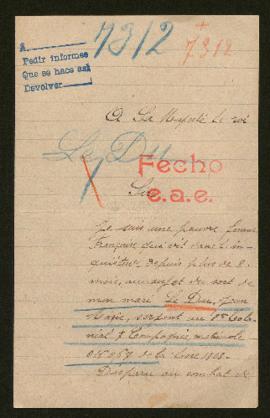 A
Pedir informes
Que se hace así
Devolver
7312
7312
A Sa Majesté le roi
Le Dru
Fecho
e.a.e.
Sire
Je suis une pauvre femme
Française qui vit dans l'in-
quiétude depuis plus de 2
mois, au sujet du sort de
mon mari Le Dru, Jean
Marie, sergent au
nial 7e Compagnie, matricule
de la classe 1908.
Disparu au combat de